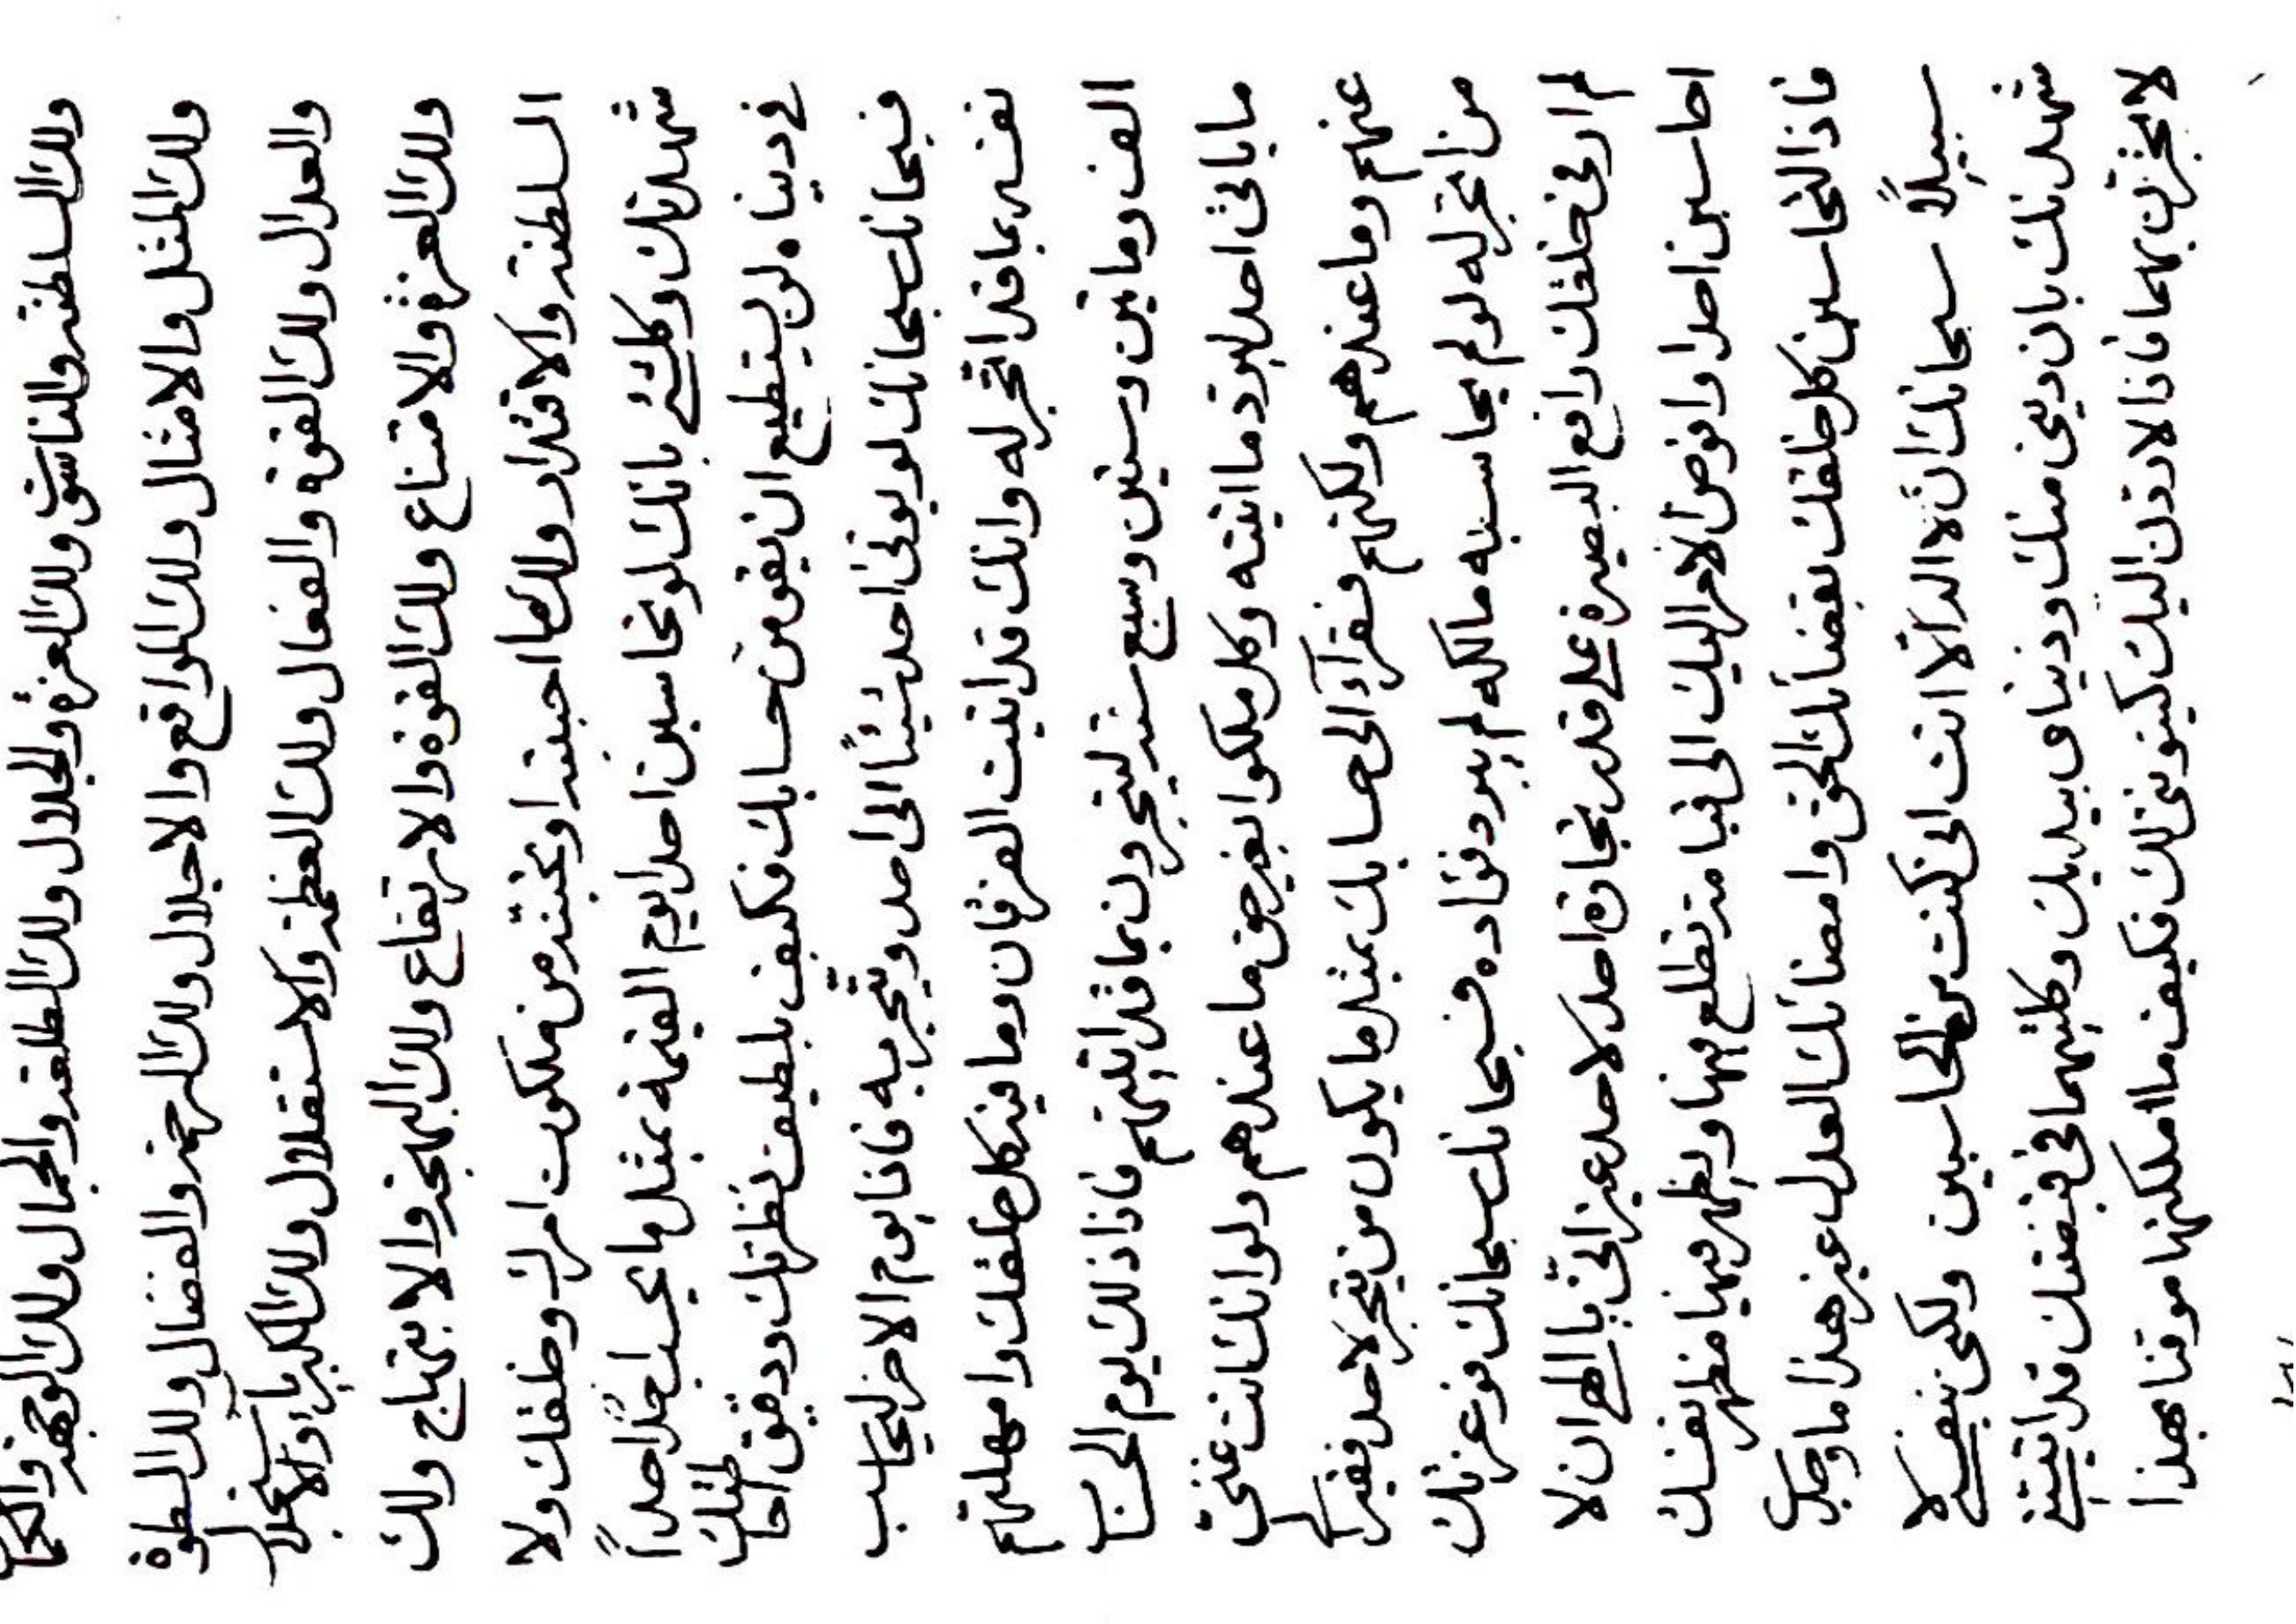 ولك السلطنة والناسوت ولك العزة والجلال ولك الطلعة والجمال ولك الوجهة والكمال
ولك المثل والامثال ولك المواقع والاجلال ولك الرحمة والفضال ولك السطوة
والعدال ولك القوة والفعال ولك العظمة والاستقلال ولك الكبرياء والاستجلال
ولك العزة والامتناع ولك القوة والارتفاع ولك البهجة والابتهاج ولك
السلطنة والاقتدار ولك ما احببته او تحبنه من ملكوت امرك وخلقك ولا
شهدنك وكلشئ بانك لو تحاسبن احدا يوم القيمة بمثل ما يحاسب احد احداً
في دينا ه لن يستطيع ان يفو من حسابك فكيف بلطيف نظرتك ودقيق احاطتك
فسبحانك سبحانك لو يوتى احد شيئاً الى احد ويتجر به فاذا يوم الاخر ليحاسب
نفسه بما قد اتجر له وانك قد اتيت الفرقان وما فيه كل خلقك وامهلتهم
الف ومأتين وستين وسبع سنة ليتجرون بما قد اتيتهم فاذا ذلك يوم الحساب
ما باتى احد ليرد ما اتيته وكل ملكوا بغير حق ما عندهم ولو انك انت غنى
عنهم وما عندهم ولكنهم فقرآء الى حسابك بمثل ما يكون من يتجر لاحد فقيرا
من اتجر له لو لم يحاسبه ما لكه لم يبرد فؤاده فسبحانك سبحانك فوعزتك
لم ار في خلقك رافع البصيرة على قدر تجارة احد لاحد غير انى يا الهى ان لا
احاسبن احدا وافوض الامر اليك الى قيامة تطلع فيها ويظهر فيها مظهر نفسك
فاذا لتحاسبن كل خلقك بقضائك الحق وامضائك العدل غير هذا ما وجد
سبيلاً سبحانك ان لا اله الا انت انى كنت من المحاسبين ولكن بنفسى لا
شهدنك بان دينى منك ودنياى بيديك وكلتيهما في قبضتك قد اتيتنى
لا تجرن بهما فاذا لاردن اليك كينونتى لك فكيف ما املكنها موقنا بهذا